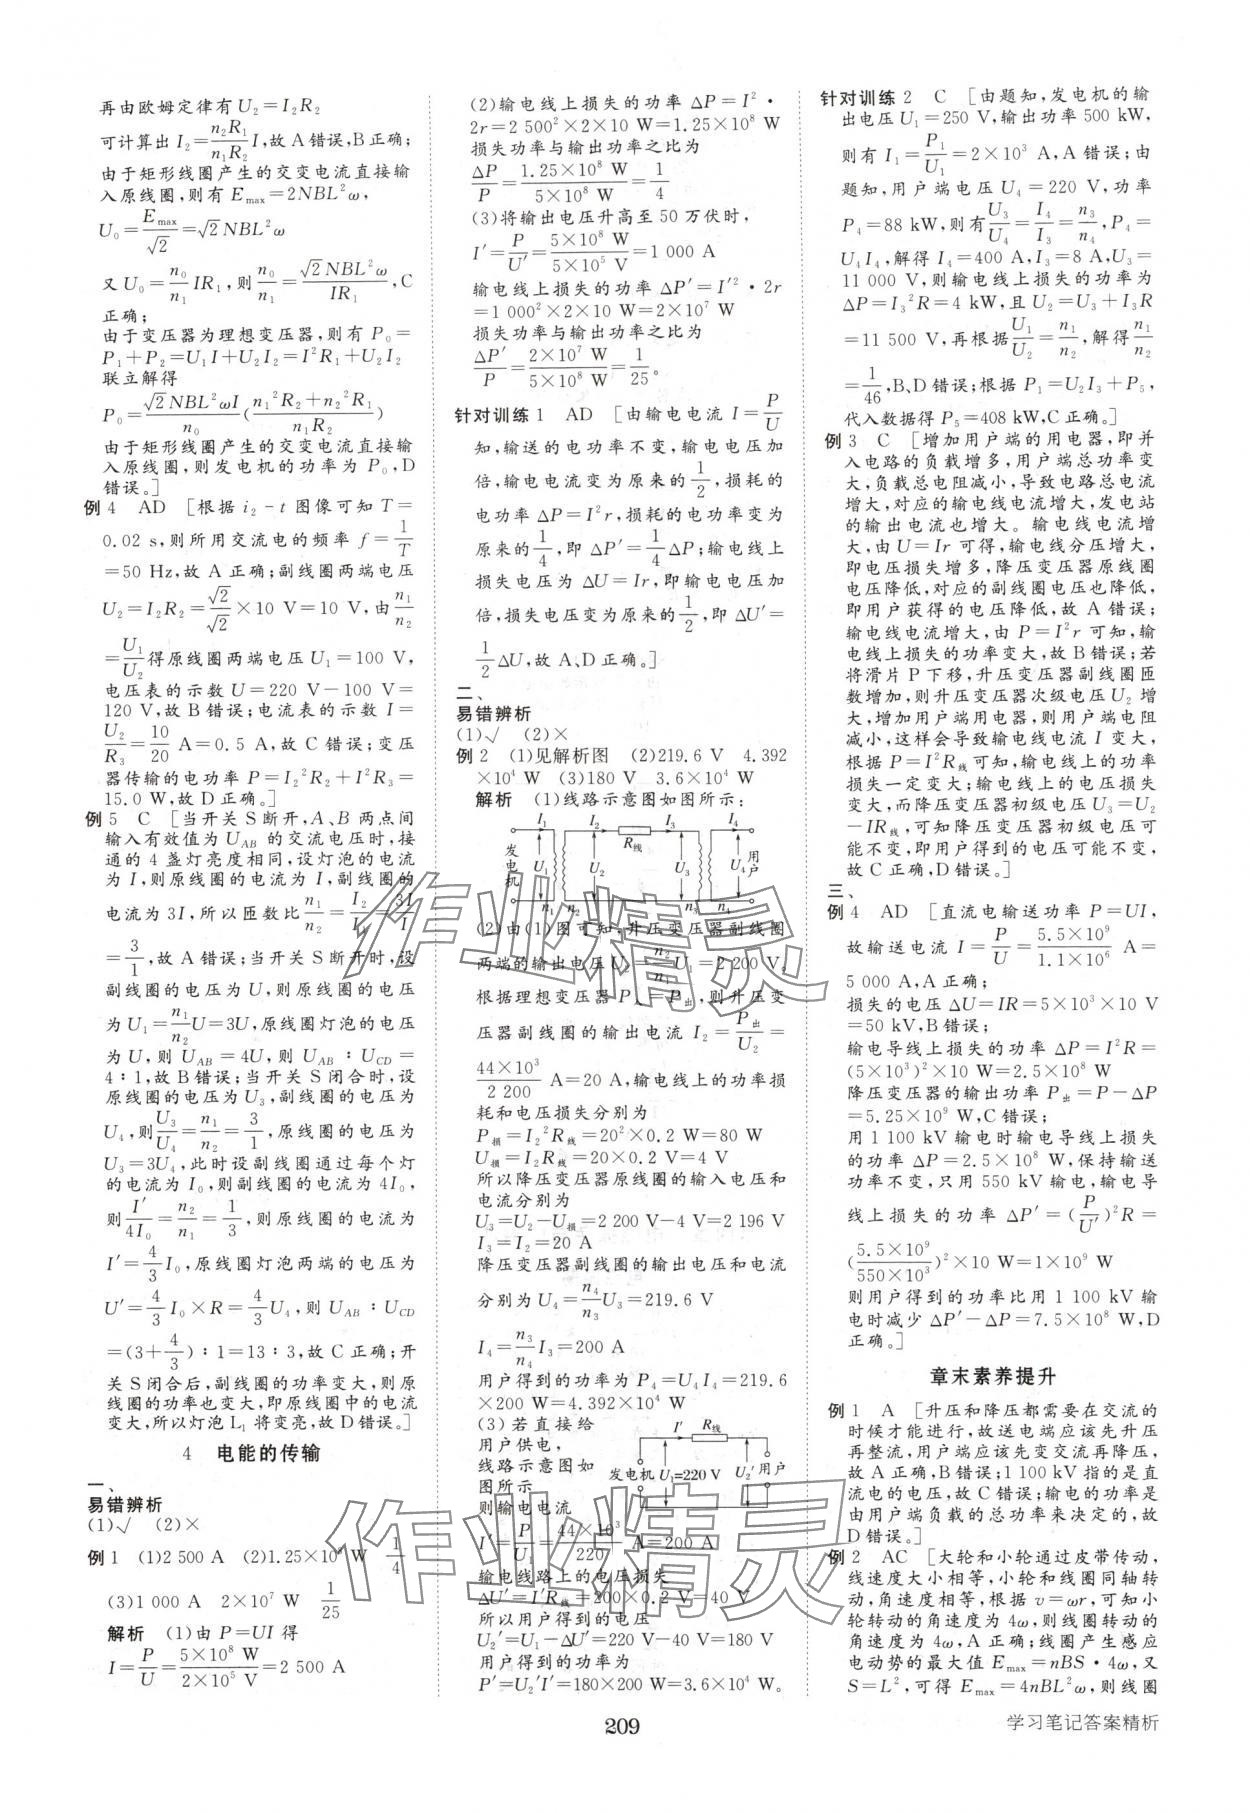 再由欧姆定律有 U₂=I₂R₂
可计算出 I₂=\frac{n₂R₁}{n₁R₂}I,故 A 错误,B 正确;
由于矩形线圈产生的交变电流直接输
入原线圈,则有 E_{max}=2NBL²ω,
U₀=\frac{E_{max}}{\sqrt{2}}=\sqrt{2}NBL²ω
又 U₀=\frac{n₀}{n₁}IR₁,则\frac{n₀}{n₁}=\frac{\sqrt{2}NBL²ω}{IR₁},C
正确;
由于变压器为理想变压器,则有 P₀=
P₁+P₂=U₁I+U₂I₂=I²R₁+U₂I₂
联立解得
P₀=\frac{\sqrt{2}NBL²ωI}{n₀}(\frac{n₁²R₂+n₂²R₁}{n₁R₂})
由于矩形线圈产生的交变电流直接输
入原线圈,则发电机的功率为 P₀,D
错误。]
例 4 AD [根据 i₂-t 图像可知 T=
0.02 s,则所用交流电的频率 f=\frac{1}{T}
=50 Hz,故 A 正确;副线圈两端电压
U₂=I₂R₂=\frac{\sqrt{2}}{\sqrt{2}}×10 V=10 V,由\frac{n₁}{n₂}
=\frac{U₁}{U₂}得原线圈两端电压 U₁=100 V,
电压表的示数 U=220 V-100 V=
120 V,故 B 错误;电流表的示数 I=
\frac{U₂}{R₃}=\frac{10}{20} A=0.5 A,故 C 错误;变压
器传输的电功率 P=I₂²R₂+I²R₃=
15.0 W,故 D 正确。]
例 5 C [当开关 S 断开,A、B 两点间
输入有效值为 U_{AB} 的交流电压时,接
通的 4 盏灯亮度相同,设灯泡的电流
为 I,则原线圈的电流为 I,副线圈的
电流为 3I,所以匝数比\frac{n₁}{n₂}=\frac{I₂}{I₁}=\frac{3I}{I}
=\frac{3}{1},故 A 错误;当开关 S 断开时,设
副线圈的电压为 U,则原线圈的电压
为 U₁=\frac{n₁}{n₂}U=3U,原线圈灯泡的电压
为 U,则 U_{AB}=4U,则 U_{AB}∶U_{CD}=
4∶1,故 B 错误;当开关 S 闭合时,设
原线圈的电压为 U₃,副线圈的电压为
U₄,则\frac{U₃}{U₄}=\frac{n₁}{n₂}=\frac{3}{1},原线圈的电压为
U₃=3U₄,此时设副线圈通过每个灯
的电流为 I₀,则副线圈的电流为 4I₀,
则\frac{I'}{4I₀}=\frac{n₂}{n₁}=\frac{1}{3},则原线圈的电流为
I'=\frac{4}{3}I₀,则原线圈灯泡两端电压为
U'=\frac{4}{3}I₀×R=\frac{4}{3}U₄,则 U_{AB}∶U_{CD}
=(3+\frac{4}{3})∶1=13∶3,故 C 正确;开
关 S 闭合后,副线圈的功率变大,则原
线圈的功率也变大,即原线圈中的电流
变大,所以灯泡 L₁ 将变亮,故 D 错误。]
4 电能的传输
一、
易错辨析
(1)√ (2)×
例 1 (1)2 500 A (2)1.25×10⁸ W \frac{1}{4}
(3)1 000 A 2×10⁷ W \frac{1}{25}
解析 (1)由 P=UI 得
I=\frac{P}{U}=\frac{5×10⁸ W}{2×10⁵ V}=2 500 A
(2)输电线上损失的功率 ΔP=I²·
2r=2 500²×2×10 W=1.25×10⁸ W
损失功率与输出功率之比为
\frac{ΔP}{P}=\frac{1.25×10⁸ W}{5×10⁸ W}=\frac{1}{4}
(3)将输出电压升高至 50 万伏时,
I'=\frac{P}{U'}=\frac{5×10⁸ W}{5×10⁵ V}=1 000 A
输电线上损失的功率 ΔP'=I'²·2r
=1 000²×2×10 W=2×10⁷ W
损失功率与输出功率之比为
\frac{ΔP'}{P}=\frac{2×10⁷ W}{5×10⁸ W}=\frac{1}{25}。
针对训练 1 AD [由输电电流 I=\frac{P}{U}
知,输送的电功率不变,输电电压加
倍,输电电流变为原来的\frac{1}{2},损耗的
电功率 ΔP=I²r,损耗的电功率变为
原来的\frac{1}{4},即 ΔP'=\frac{1}{4}ΔP;输电线上
损失电压为 ΔU=Ir,即输电电压加
倍,损失电压变为原来的\frac{1}{2},即 ΔU'=
\frac{1}{2}ΔU,故 A、D 正确。]
二、
易错辨析
(1)√ (2)×
例 2 (1)见解析图 (2)219.6 V 4.392
×10⁴ W (3)180 V 3.6×10⁴ W
解析 (1)线路示意图如图所示:
I₁ I₂ I₃ I₄
R线
发电机 U₁ U₂ U₃ U₄ 用户
n₁ n₂ n₃ n₄
(2)由(1)图可知,升压变压器副线圈
两端的输出电压 U₂=\frac{n₂}{n₁}U₁=2 200 V,
根据理想变压器 P入=P出,则升压变
压器副线圈的输出电流 I₂=\frac{P出}{U₂}=
\frac{44×10³}{2 200} A=20 A,输电线上的功率损
耗和电压损失分别为
P损=I₂²R线=20²×0.2 W=80 W
U损=I₂R线=20×0.2 V=4 V
所以降压变压器原线圈的输入电压和
电流分别为
U₃=U₂-U损=2 200 V-4 V=2 196 V
I₃=I₂=20 A
降压变压器副线圈的输出电压和电流
分别为 U₄=\frac{n₄}{n₃}U₃=219.6 V
I₄=\frac{n₃}{n₄}I₃=200 A
用户得到的功率为 P₄=U₄I₄=219.6
×200 W=4.392×10⁴ W
(3)若直接给
用户供电,
线路示意图如
图所示
I' R线
发电机 U₁=220 V U₂' 用户
则输电电流
I'=\frac{P}{U₁}=\frac{44×10³}{220} A=200 A
输电线路上的电压损失
ΔU'=I'R线=200×0.2 V=40 V
所以用户得到的电压
U₂'=U₁-ΔU'=220 V-40 V=180 V
用户得到的功率为
P'=U₂'I'=180×200 W=3.6×10⁴ W。
针对训练 2 C [由题知,发电机的输
出电压 U₁=250 V,输出功率 500 kW,
则有 I₁=\frac{P₁}{U₁}=2×10³ A,A 错误;由
题知,用户端电压 U₄=220 V,功率
P₄=88 kW,则有\frac{U₃}{U₄}=\frac{I₄}{I₃}=\frac{n₃}{n₄},P₄=
U₄I₄,解得 I₄=400 A,I₃=8 A,U₃=
11 000 V,则输电线上损失的功率为
ΔP=I₃²R=4 kW,且 U₂=U₃+I₃R
=11 500 V,再根据\frac{U₁}{U₂}=\frac{n₁}{n₂},解得\frac{n₁}{n₂}
=\frac{1}{46},B、D 错误;根据 P₁=U₂I₃+P₅,
代入数据得 P₅=408 kW,C 正确。]
例 3 C [增加用户端的用电器,即并
入电路的负载增多,用户端总功率变
大,负载总电阻减小,导致电路总电流
增大,对应的输电线电流增大,发电站
的输出电流也增大。输电线电流增
大,由 U=Ir 可得,输电线分压增大,
即电压损失增多,降压变压器原线圈
电压降低,对应的副线圈电压也降低,
即用户获得的电压降低,故 A 错误;
输电线电流增大,由 P=I²r 可知,输
电线上损失的功率变大,故 B 错误;若
将滑片 P 下移,升压变压器副线圈匝
数增加,则升压变压器次级电压 U₂ 增
大,用户端用电器,则用户端电阻
减小,这样会导致输电线电流 I 变大,
根据 P=I²R线可知,输电线上的功率
损失一定变大;输电线上的电压损失
变大,而降压变压器初级电压 U₃=U₂
-IR线,可知降压变压器初级电压可
能不变,即用户得到的电压可能不变,
故 C 正确,D 错误。]
三、
例 4 AD [直流电输送功率 P=UI,
故输送电流 I=\frac{P}{U}=\frac{5.5×10⁹}{1.1×10⁶} A=
5 000 A,A 正确;
损失的电压 ΔU=IR=5×10³×10 V
=50 kV,B 错误;
输电导线上损失的功率 ΔP=I²R=
(5×10³)²×10 W=2.5×10⁸ W
降压变压器的输出功率 P出=P-ΔP
=5.25×10⁹ W,C 错误;
用 1 100 kV 输电时输电导线上损失
的功率 ΔP=2.5×10⁸ W,保持输送
功率不变,只用 550 kV 输电,输电导
线上损失的功率 ΔP'=(\frac{P}{U'})²R=
(\frac{5.5×10⁹}{550×10³})²×10 W=1×10⁹ W
则用户得到的功率比用 1 100 kV 输
电时减少 ΔP'-ΔP=7.5×10⁸ W,D
正确。]
章末素养提升
例 1 A [升压和降压都需要在交流的
时候才能进行,故送电端应该先升压
再整流,用户端应该先变交流再降压,
故 A 正确,B 错误;1 100 kV 指的是直
流电的电压,故 C 错误;输电的功率是
由用户端负载的总功率来决定的,故
D 错误。]
例 2 AC [大轮和小轮通过皮带传动,
线速度大小相等,小轮和线圈同轴转
动,角速度相等,根据 v=ωr,可知小
轮转动的角速度为 4ω,则线圈转动的
角速度为 4ω,A 正确;线圈产生感应
电动势的最大值 E_{max}=nBS·4ω,又
S=L²,可得 E_{max}=4nBL²ω,则线圈
209
学习笔记答案精析
作业精灵
作业精灵